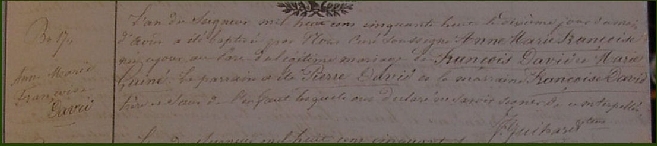 Bo 17
Anne Marie
françoise
David
L'an du Seigneur mil huit cent cinquante huit le sixième jour du mois
d'Avril a été baptisée par Nous Curé soussigné Anne Marie Françoise
née ce jour du légitime mariage de François David et Marie
Guiné. Le parrain a été Pierre David et la marraine Françoise David
frère et Soeur de l'enfant lesquels ont déclaré ne savoir signer de ce interpellés
J. Guihard
L'an du Seigneur mil huit cent cinquant